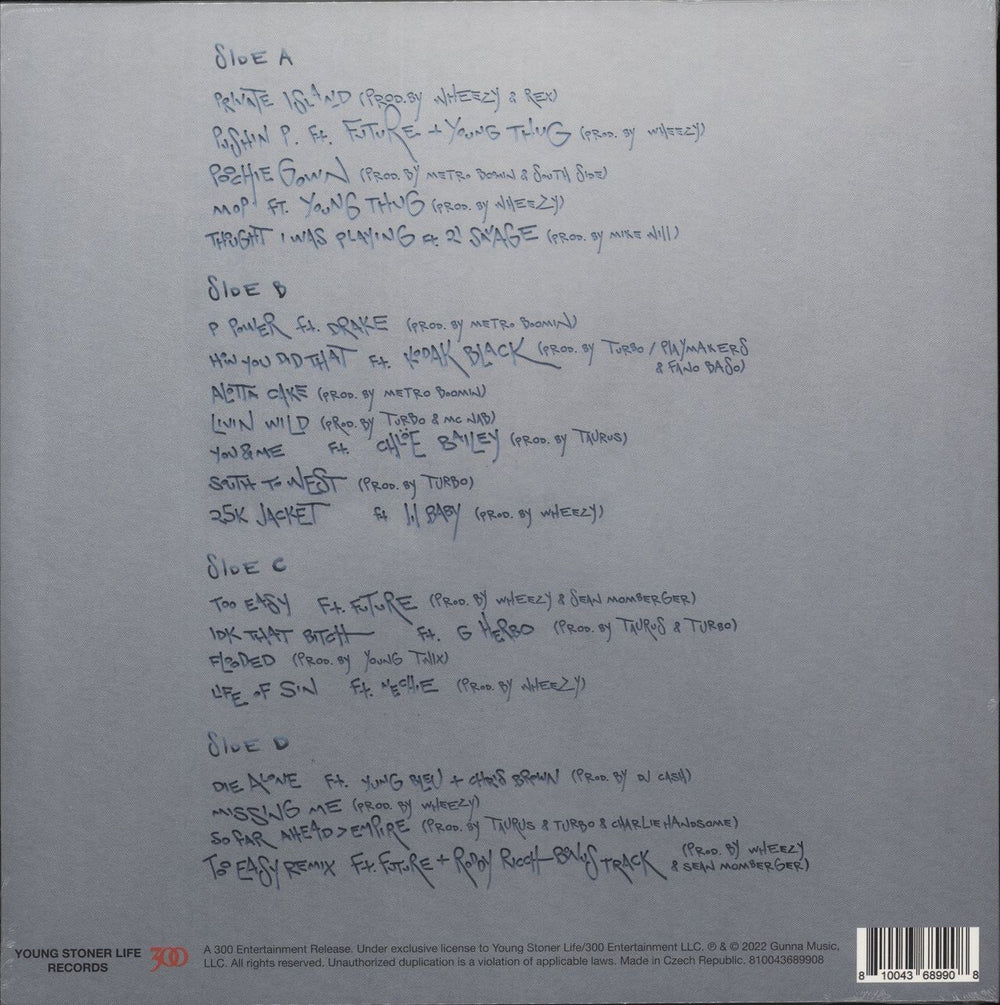 SIDE A
PRIVATE ISLAND (PROD. BY WHEEZY & REX)
PUSHIN P. Ft. FUTURE + YOUNG THUG (PROD. BY WHEEZY)
POOCHIE GOWN (PROD. BY METRO BOMIN & SOUTH SIDE)
MOP FT. YOUNG THUG (PROD. BY WHEEZY)
THOUGHT I WAS PLAYING Ft. 21 SAVAGE (PROD. BY MIKE WILL)
SIDE B
P POWER Ft. DRAKE (PROD. BY METRO BOOMIN)
HOW YOU DID THAT Ft. KODAK BLACK (PROD. BY TURBO / PLAYMAKERS
& FANO BASO)
ALOTTA CAKE (PROD. BY METRO BOOMIN)
LIVIN WILD (PROD. BY TURBO & MC NAB)
YOU & ME Ft. CHLÖE BAILEY (PROD. BY TAURUS)
SOUTH TO WEST (PROD. BY TURBO)
25K JACKET ft LIL BABY (PROD. BY WHEEZY)
SIDE C
TOO EASY Ft. FUTURE (PROD. BY WHEEZY & SEAN MOMBERGER)
IDK THAT BITCH Ft. G HERBO (PROD. BY TAURUS & TURBO)
FLOODED (PROD. BY YOUNG TWIX)
LIFE OF SIN Ft. NECHIE (PROD. BY WHEEZY)
SIDE D
DIE ALONE Ft. YUNG BLEU + CHRIS BROWN (PROD. BY DJ CASH)
MISSING ME (PROD. BY WHEEZY)
SO FAR AHEAD > EMPIRE (PROD. BY TAURUS & TURBO & CHARLIE HANDSOME)
TOO EASY REMIX Ft. FUTURE + RODDY RICCH - BONUS TRACK (PROD. BY WHEEZY
& SEAN MOMBERGER)
YOUNG STONER LIFE
RECORDS
300
A 300 Entertainment Release. Under exclusive license to Young Stoner Life/300 Entertainment LLC. ℗ & © 2022 Gunna Music,
LLC. All rights reserved. Unauthorized duplication is a violation of applicable laws. Made in Czech Republic. 810043689908
8 10043 68990 8